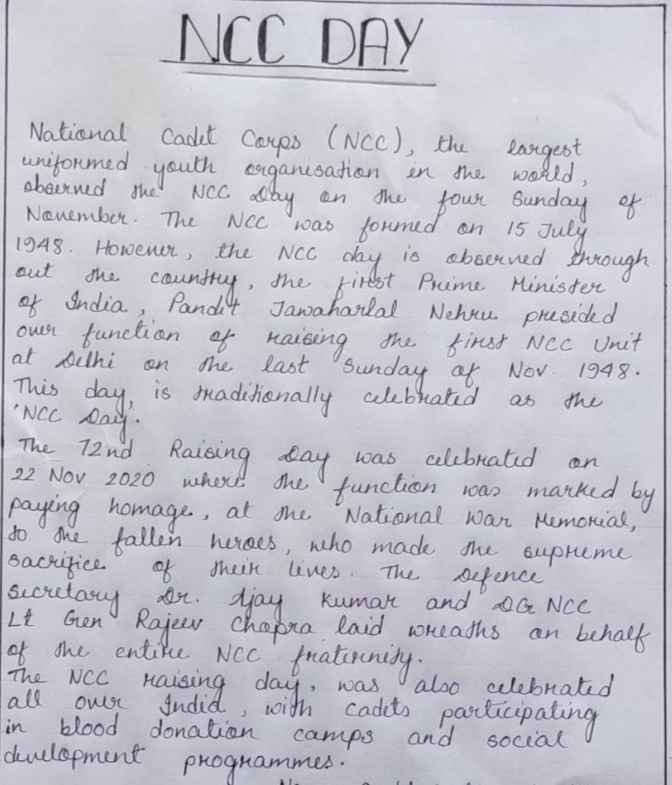 NCC DAY
National Cadet Corps (NCC), the largest
uniformed youth organisation in the world,
observed the NCC Day on the four Sunday of
November. The NCC was formed on 15 July
1948. However, the NCC day is observed through
out the country, the first Prime Minister
of India, Pandit Jawaharlal Nehru presided
over function of raising the first NCC Unit
at Delhi on the last Sunday of Nov. 1948.
This day, is traditionally celebrated as the
'NCC Day'.
The 72nd Raising Day was celebrated on
22 Nov 2020 where the function was marked by
paying homage, at the National War Memorial,
to the fallen heroes, who made the supreme
sacrifice of their lives. The Defence
Secretary Dr. Ajay Kumar and DG NCC
Lt Gen Rajeev Chopra laid wreaths on behalf
of the entire NCC fraternity.
The NCC raising day, was also celebrated
all over India, with cadets participating
in blood donation camps and social
development programmes.